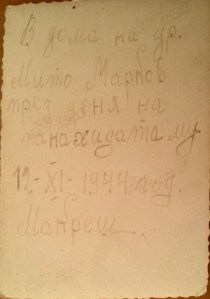 В дома на др.
Мито Марков
през деня на
панахидата му
12-XI-1944 год.
Макреш.